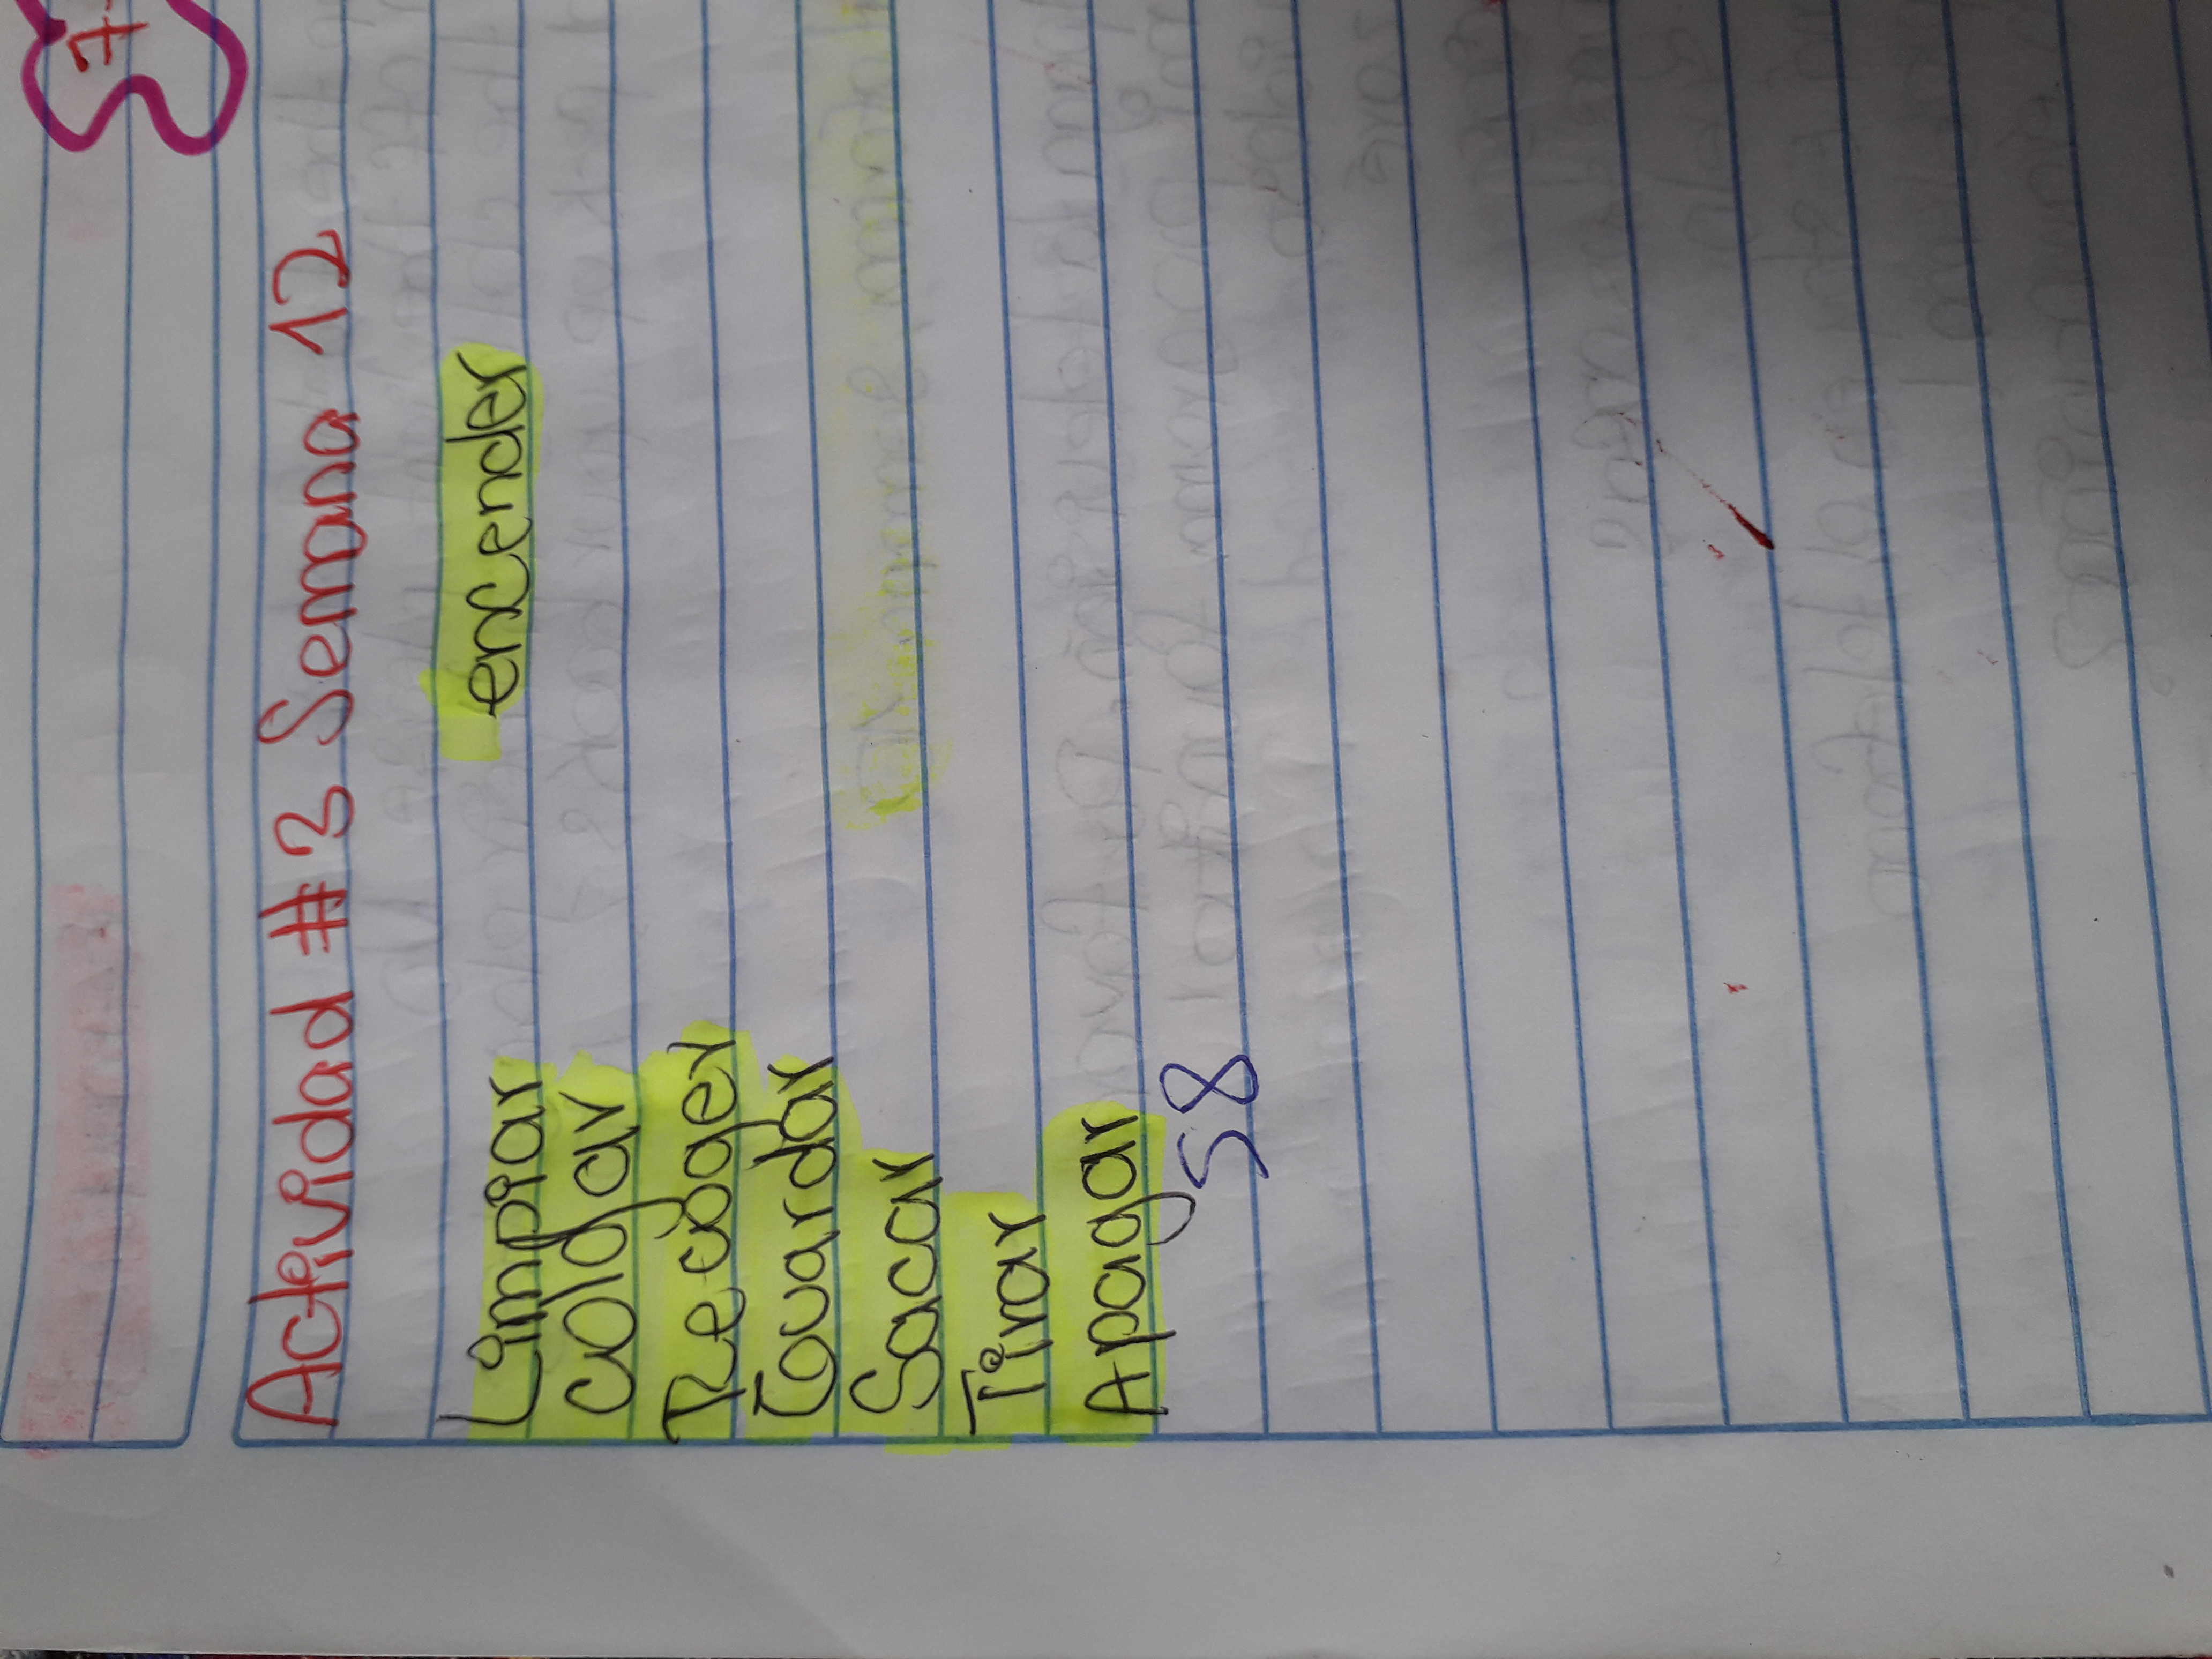 7
Actividad # 3 Semana 12
Limpiar encender
colgar
Recoger
Guardar
Sacar
Tirar
Apagar
58